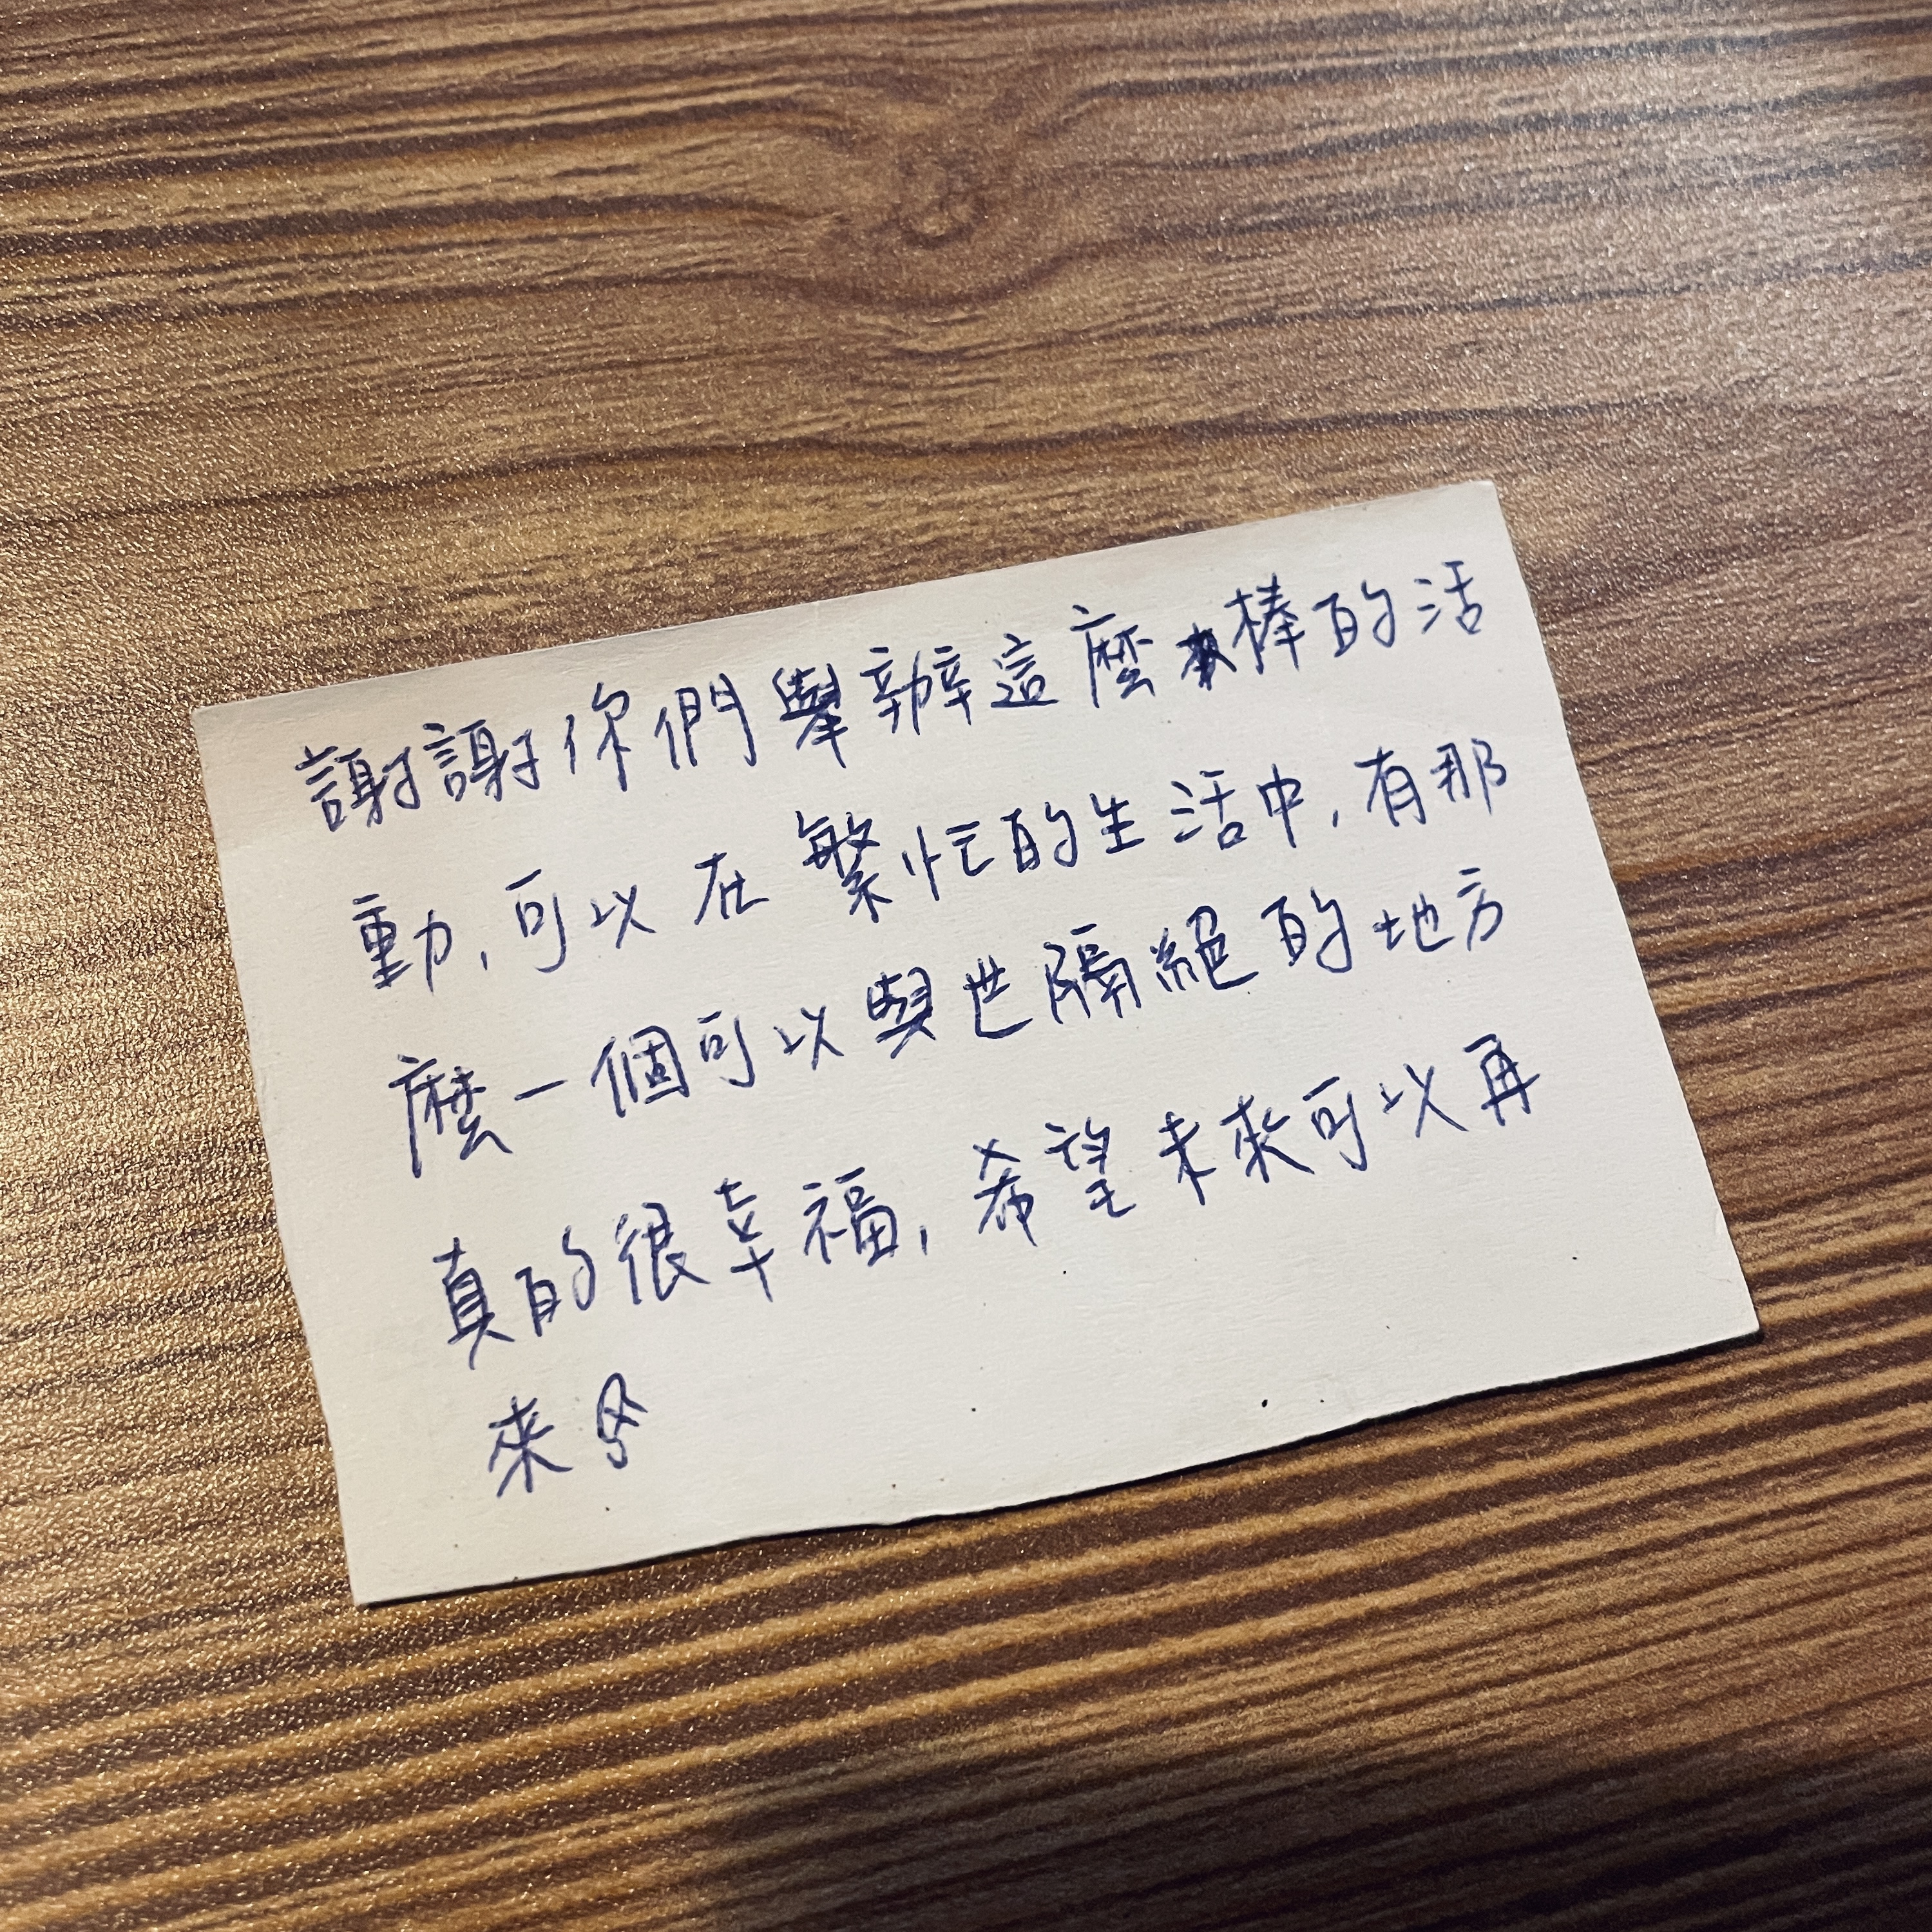 謝謝你們舉辦這麼棒的活
動,可以在繁忙的生活中,有那
麼一個可以與世隔絕的地方
真的很幸福,希望未來可以再
來